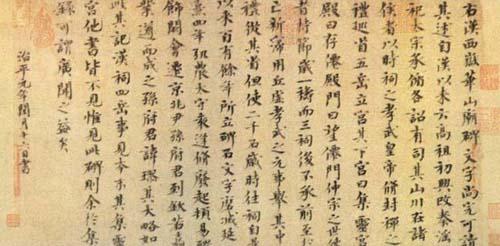 右漢西嶽華山廟碑文字尚完可讀
其述自漢以來云高祖初興改秦淫
祀太宗承循各詔有司其山川在諸
侯者以時祠之孝武皇帝修封禪之
禮巡省五岳立宮其下宮曰集靈宮
殿曰存僊殿門曰望僊門仲宗之世使
者持節歲一禱而三祠後不承前至于
亡新寖用丘虛孝武之元事舉其中
禮從其省但使二千石歲時往祠自是
以來百有餘年所立碑石文字磨滅延
熹四年弘農太守袁逢修廢起頓易碑
飾闕會遷京兆尹孫府君到欽若嘉
業遵而成之孫府君諱璆其大略如
此其記漢祠四岳事見本末其集靈
宮他書皆不見惟見此碑則余於集
錄可謂廣聞之益矣
治平元年閏月十六日書